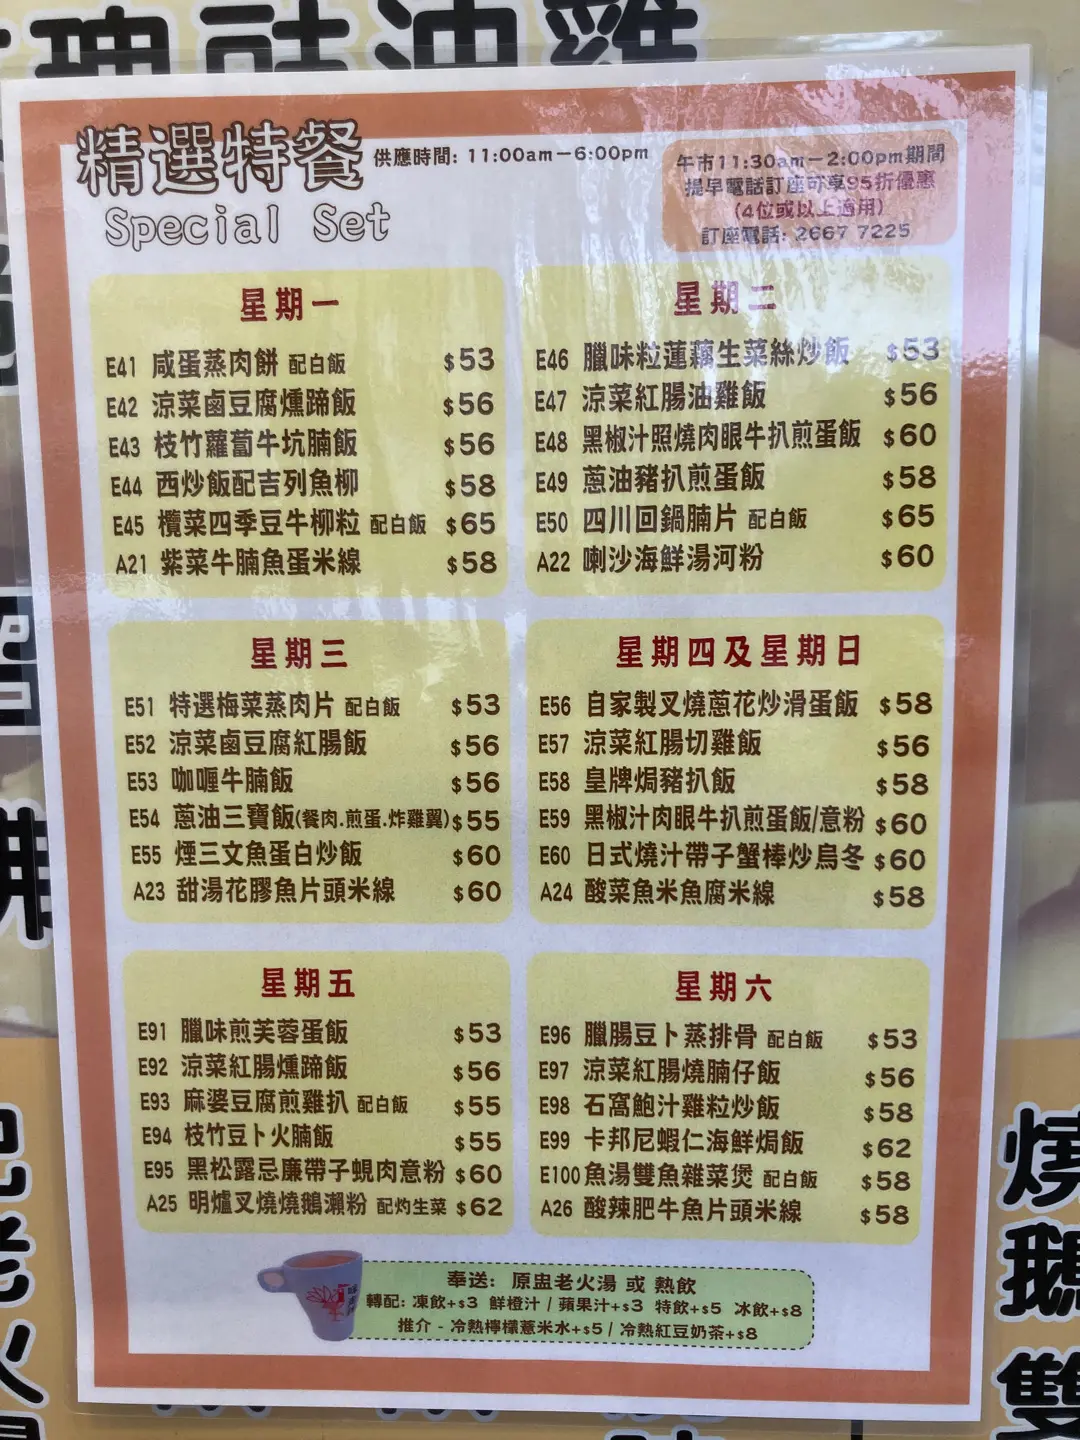 精選特餐 供應時間: 11:00am－6:00pm
Special Set
午市11:30am－2:00pm期間
提早電話訂座可享95折優惠
(4位或以上適用)
訂座電話: 2667 7225
星期一
E41 咸蛋蒸肉餅 配白飯 $53
E42 涼菜鹵豆腐燻蹄飯 $56
E43 枝竹蘿蔔牛坑腩飯 $56
E44 西炒飯配吉列魚柳 $58
E45 欖菜四季豆牛柳粒 配白飯 $65
A21 紫菜牛腩魚蛋米線 $58
星期二
E46 臘味粒蓮藕生菜絲炒飯 $53
E47 涼菜紅腸油雞飯 $56
E48 黑椒汁照燒肉眼牛扒煎蛋飯 $60
E49 蔥油豬扒煎蛋飯 $58
E50 四川回鍋腩片 配白飯 $65
A22 喇沙海鮮湯河粉 $60
星期三
E51 特選梅菜蒸肉片 配白飯 $53
E52 涼菜鹵豆腐紅腸飯 $56
E53 咖喱牛腩飯 $56
E54 蔥油三寶飯(餐肉.煎蛋.炸雞翼) $55
E55 煙三文魚蛋白炒飯 $60
A23 甜湯花膠魚片頭米線 $60
星期四及星期日
E56 自家製叉燒蔥花炒滑蛋飯 $58
E57 涼菜紅腸切雞飯 $56
E58 皇牌焗豬扒飯 $58
E59 黑椒汁肉眼牛扒煎蛋飯/意粉 $60
E60 日式燒汁帶子蟹棒炒烏冬 $60
A24 酸菜魚米魚腐米線 $58
星期五
E91 臘味煎芙蓉蛋飯 $53
E92 涼菜紅腸燻蹄飯 $56
E93 麻婆豆腐煎雞扒 配白飯 $55
E94 枝竹豆卜火腩飯 $55
E95 黑松露忌廉帶子蜆肉意粉 $60
A25 明爐叉燒燒鵝瀨粉 配灼生菜 $62
星期六
E96 臘腸豆卜蒸排骨 配白飯 $53
E97 涼菜紅腸燒腩仔飯 $56
E98 石窩鮑汁雞粒炒飯 $58
E99 卡邦尼蝦仁海鮮焗飯 $62
E100 魚湯雙魚雜菜煲 配白飯 $58
A26 酸辣肥牛魚片頭米線 $58
奉送: 原盅老火湯 或 熱飲
轉配: 凍飲+$3 鮮橙汁 / 蘋果汁+$3 特飲+$5 冰飲+$8
推介 - 冷熱檸檬薏米水+$5 / 冷熱紅豆奶茶+$8
燒
鵝
雙